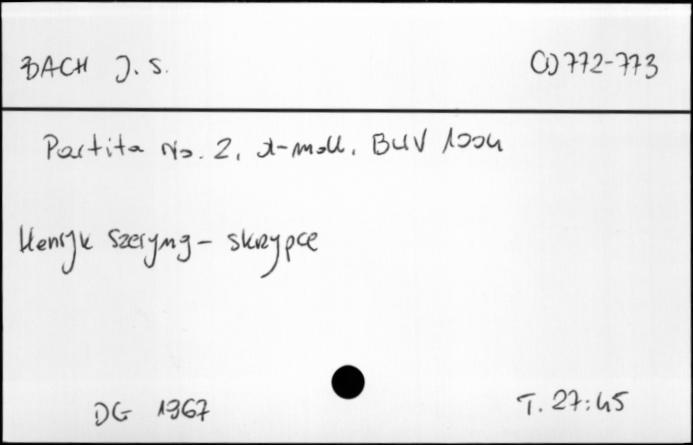 BACH J. S. CD 772-773
Partita No. 2, d-moll, BWV 1004
Henryk Szeryng - skrzypce
DG 1967 T. 27:45